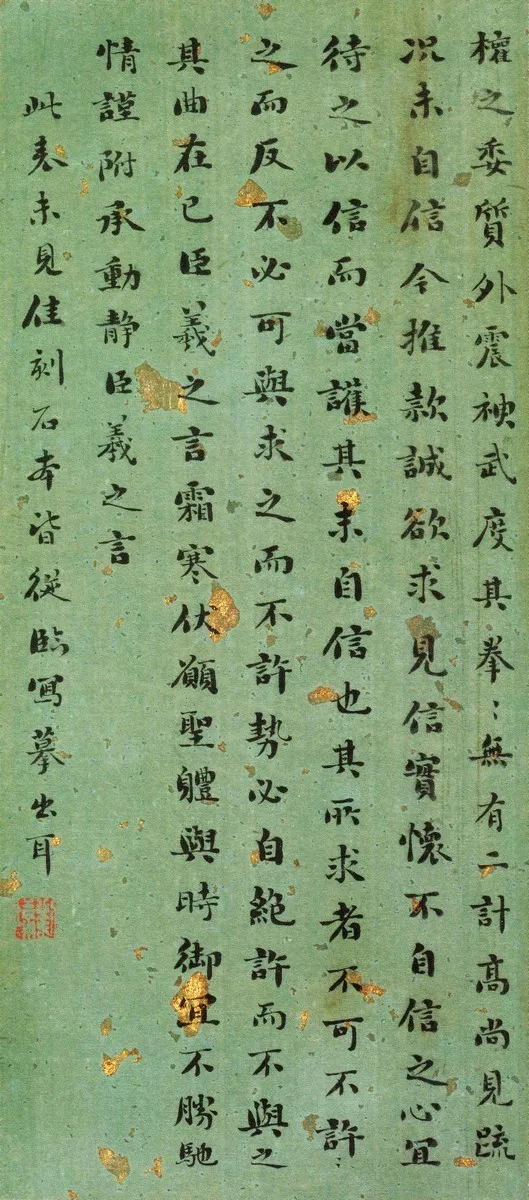 權之委質外震神武度其拳〻無有二計高尚見疏
況未自信今推款誠欲求見信實懷不自信之心宜
待之以信而當護其未自信也其所求者不可不許〻
之而反不必可與求之而不許勢必自絶許而不與之
其曲在己臣羲之言霜寒伏願聖體與時御宜不勝馳
情謹附承動静臣羲之言
此表未見佳刻石本皆從臨寫摹出耳